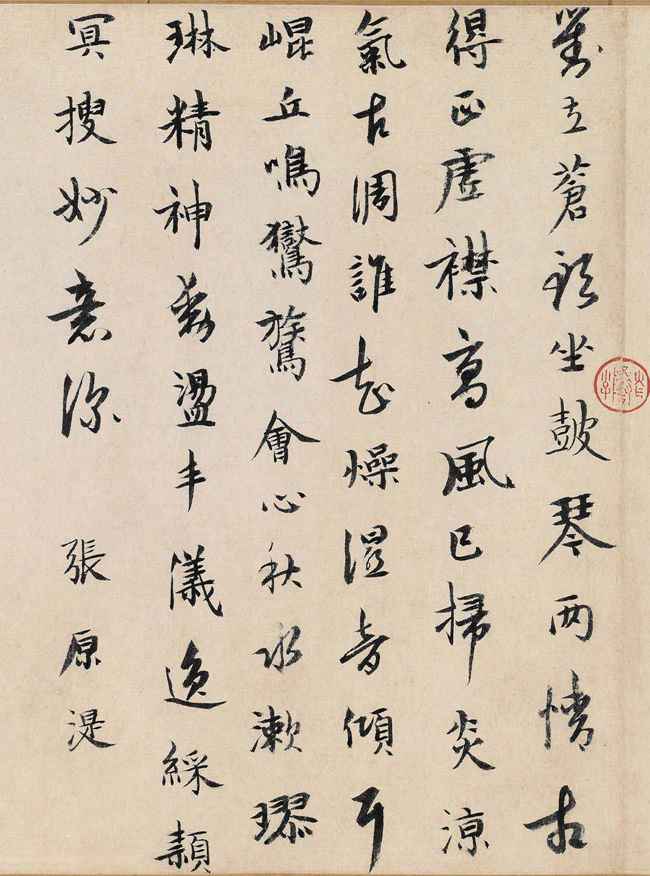 對立蒼頭坐鼓琴两情相
得正虛襟高風已掃炎凉
氣古調誰知燥濕音傾耳
崐丘鳴鸑鷟會心秋水漱璆
琳精神盪丰儀逸綵頴
冥搜妙意深 張原湜